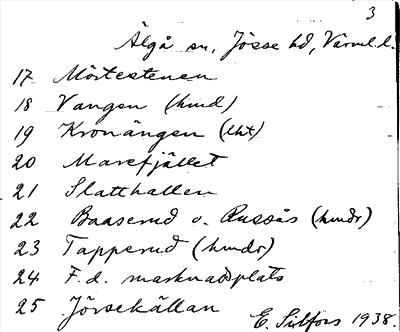 3
Älgå sn, Jösse hd, Värml.l.
17 Mörtestenen
18 Vangen (hmd)
19 Kronängen (lht)
20 Marefjället
21 Slatthallen
22 Baaserud o. Russås (hmdr)
23 Tapperud (hmdr)
24 F.d. marknadsplats
25 Jörsekällan
E. 1938.